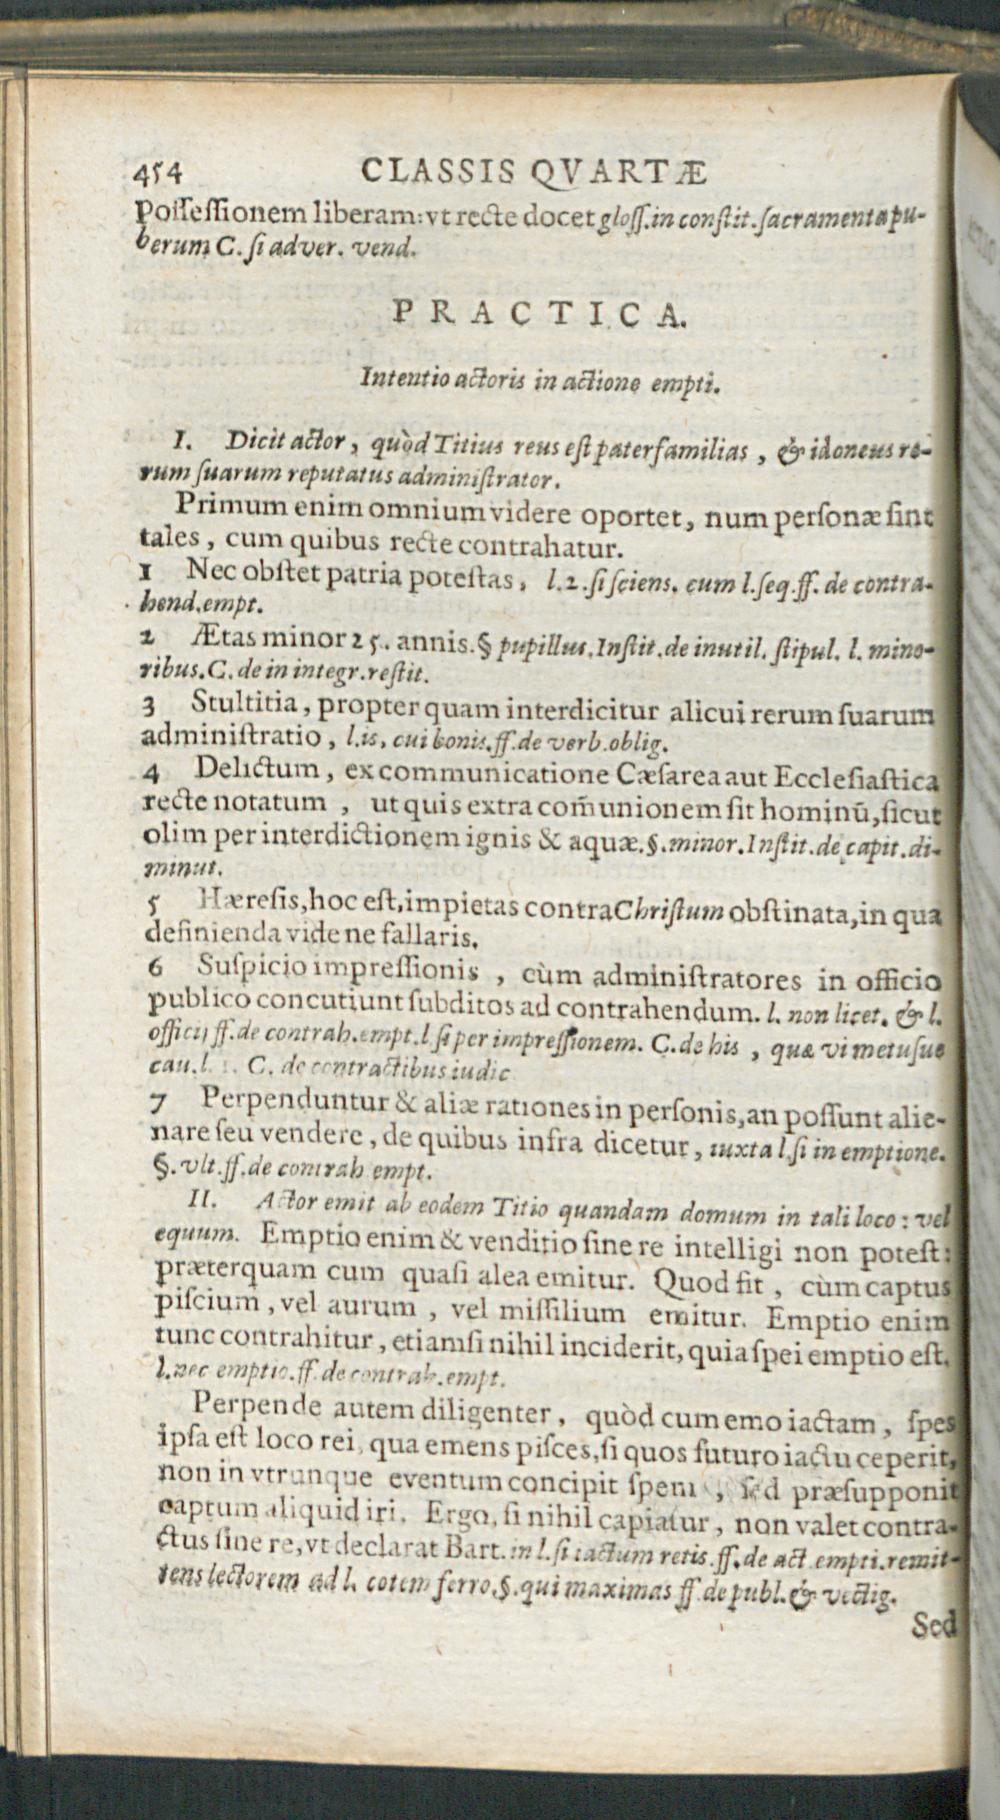 454 CLASSIS QVARTÆ
Poſſeſſionem liberam: vt recte docet gloſſ. in conſtit. ſacramenta pu-
berum C. ſi adver. vend.
PRACTICA.
Intentio actoris in actione empti.
I. Dicit actor, quòd Titius reus eſt paterfamilias, & idoneus re-
rum ſuarum reputatus adminiſtrator.
Primum enim omnium videre oportet, num perſonæ ſint
tales, cum quibus recte contrahatur.
1 Nec obſtet patria poteſtas, l. 2. ſi ſciens. cum l. ſeq. ff. de contra-
hend. empt.
2 Ætas minor 25. annis. § pupillus. Inſtit. de inutil. ſtipul. l. mino-
ribus. C. de in integr. reſtit.
3 Stultitia, propter quam interdicitur alicui rerum ſuarum
adminiſtratio, l. is, cui bonis. ff. de verb. oblig.
4 Delictum, excommunicatione Cæſarea aut Eccleſiaſtica
recte notatum, ut quis extra com̃unionem ſit hominū, ſicut
olim per interdictionem ignis & aquæ. §. minor. Inſtit. de capit. di-
minut.
5 Hæreſis, hoc eſt, impietas contra Chriſtum obſtinata, in qua
definienda vide ne fallaris.
6 Suſpicio impreſſionis, cùm adminiſtratores in officio
publico concutiunt ſubditos ad contrahendum. l. non licet. & l.
officij ff. de contrah. empt. l. ſi per impreſſionem. C. de his, quæ vi metuſue
cau. l. 1. C. de contractibus iudic
7 Perpenduntur & aliæ rationes in perſonis, an poſſunt alie-
nare ſeu vendere, de quibus infra dicetur, iuxta l. ſi in emptione.
§. vlt. ff. de contrah empt.
II. Actor emit ab eodem Titio quandam domum in tali loco: vel
equum. Emptio enim & venditio ſine re intelligi non poteſt:
præterquam cum quaſi alea emitur. Quod fit, cùm captus
piſcium, vel aurum, vel miſſilium emitur. Emptio enim
tunc contrahitur, etiamſi nihil inciderit, quia ſpei emptio eſt.
l. nec emptio. ff. de contrah. empt.
Perpende autem diligenter, quòd cum emo iactam, ſpes
ipſa eſt loco rei, qua emens piſces, ſi quos futuro iactu ceperit,
non in vtrunque eventum concipit ſpem, ſed præſupponit
captum aliquid iri. Ergo, ſi nihil capiatur, non valet contra-
ctus ſine re, vt declarat Bart. in l. ſi iactum retis. ff. de act. empti. remit-
tens lectorem ad l. cotem ferro. §. qui maximas ff. de publ. & vectig.
Sed